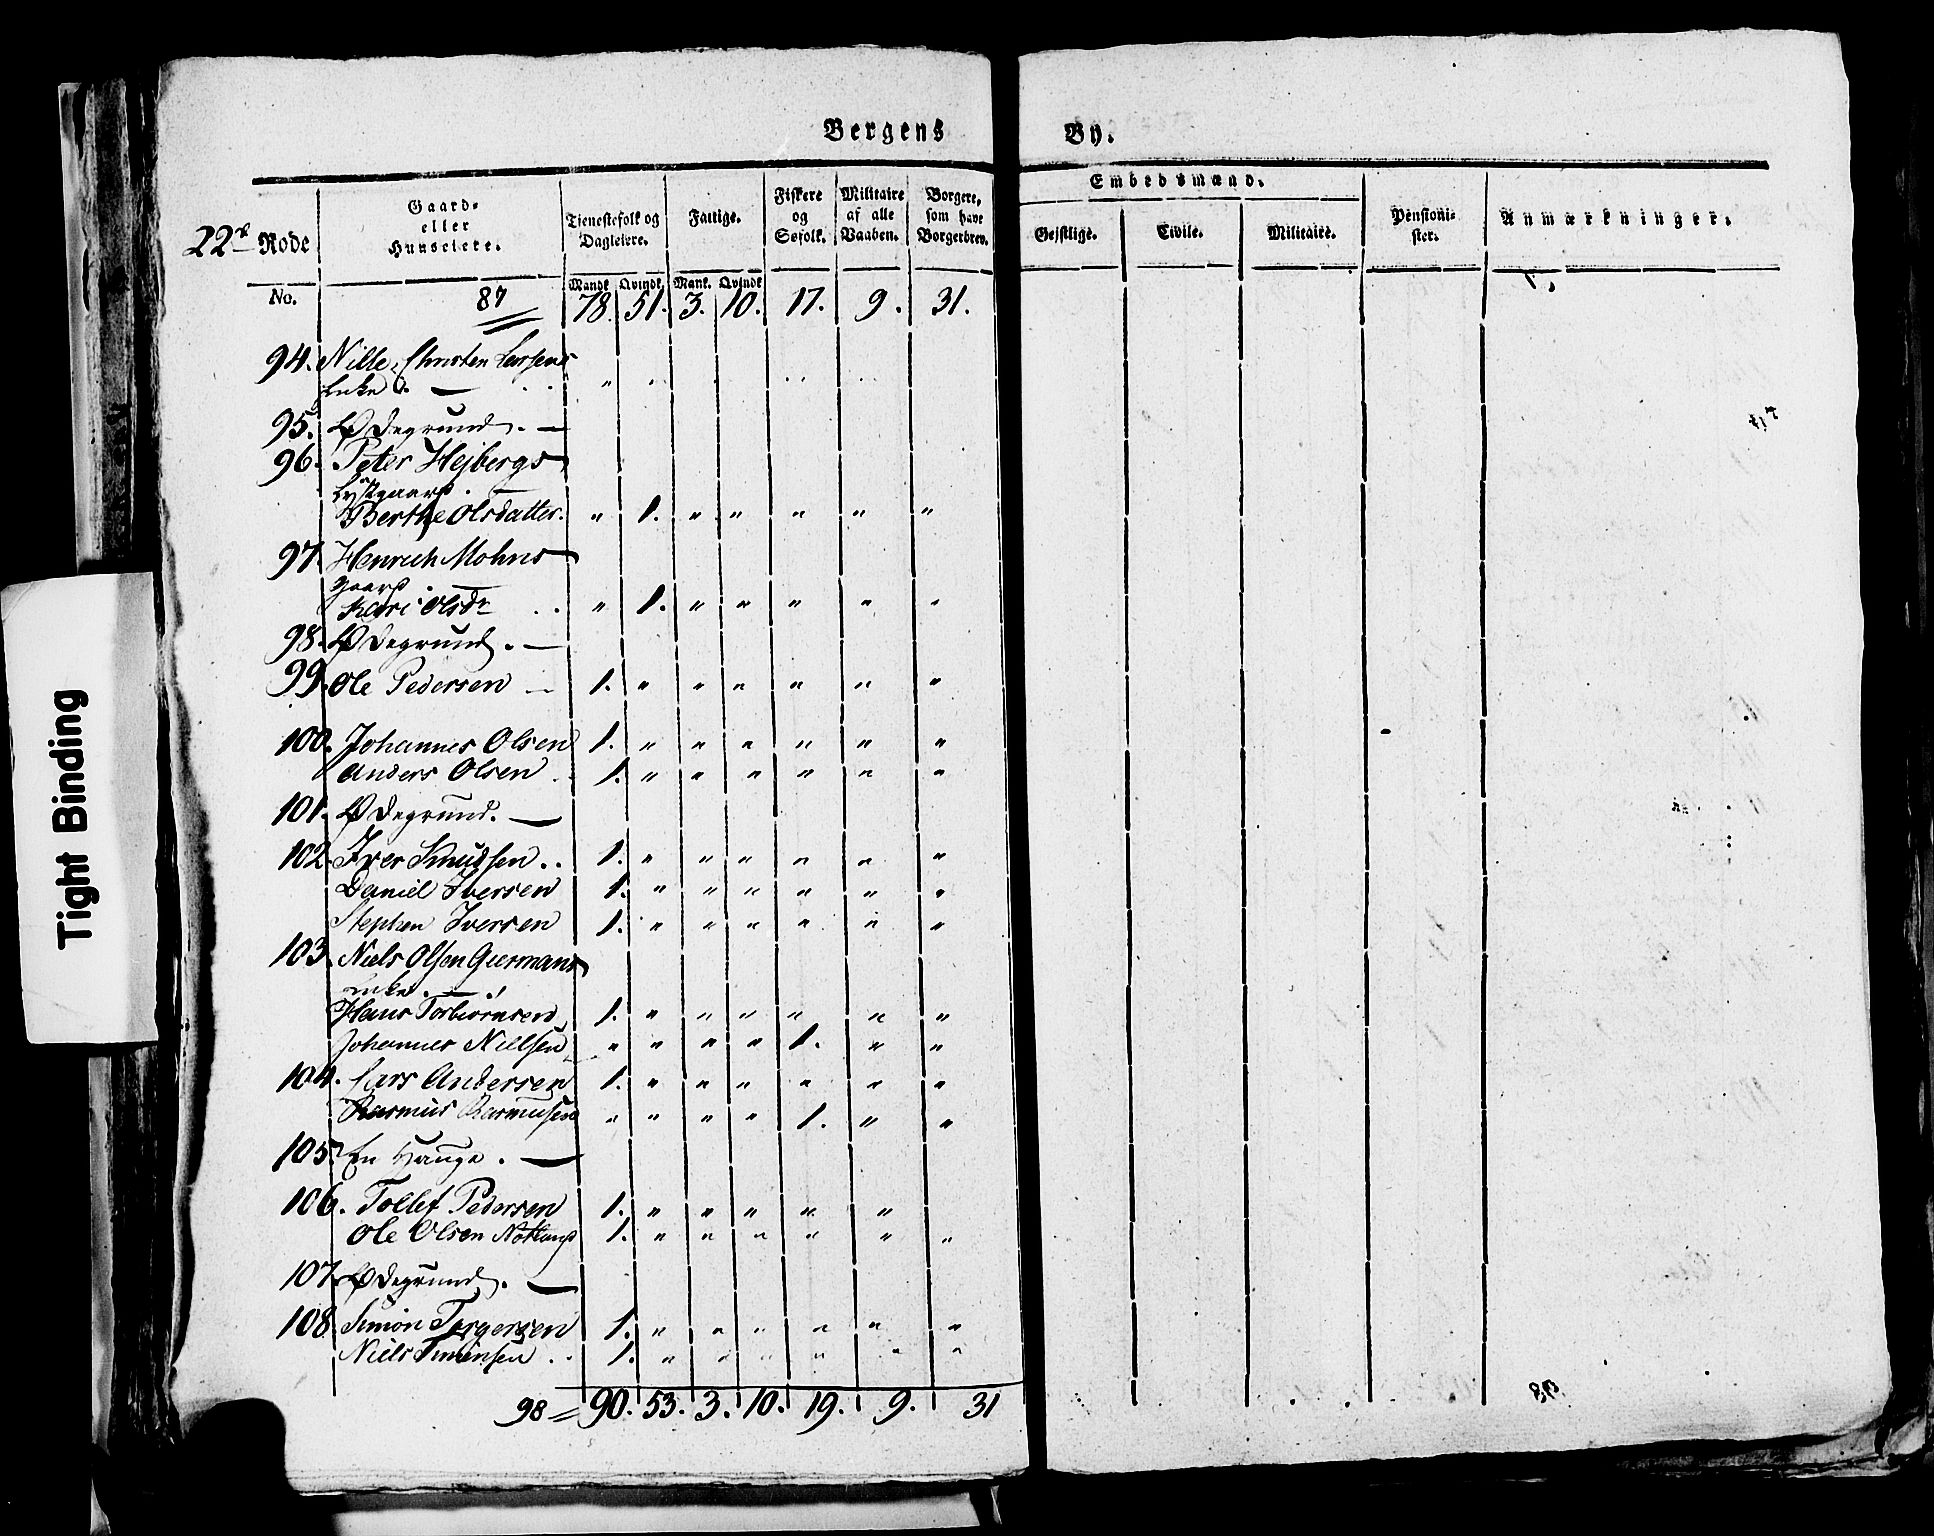 Bergens By.
22d Rode
Gaard- eller Huuseiere.
Tjenestefolk og Dagleiere.
Fattige.
Fiskere og Søfolk.
Militaire af alle Vaaben.
Borgere, som have Borgerbrev.
Embedsmænd.
Geistlige. Civile. Militaire.
Pensionister.
Anmærkninger.
No.
Mandk. Qvindk. Mank. Qvindk.
87 78. 51. 3. 10. 17. 9. 31.
94. Nille, Christen Larsens
Enke. — " "
95. Ødegrund. —
96. Peter Hejbergs
Lystgaard. —
Berthe Olsdatter. " 1. " " " " "
97. Henrich Mohns
gaard. —
Kari Olsdr " 1. " " " " "
98. Ødegrund. —
99. Ole Pedersen — 1. " " " " " "
100. Johannes Olsen 1. " " " " " "
Anders Olsen 1. " " " " " "
101. Ødegrund. —
102. Iver Knudsen.. 1. " " " " " "
Daniel Iversen 1. " " " " " "
Stephen Iversen 1. " " " " " "
103. Niels Olsen
enke. —
Hans Torbiörnsen 1. " " " " " "
Johannes Nielsen " " " " 1. " "
104. Lars Andersen 1. " " " " " "
Rasmus Rasmusen " " " " 1. " "
105. En Hauge. —
106. Tollef Pedersen 1. " " " " "
Ole Olsen 1. " " " " " "
107. Ødegrund. —
108. Simon Torgersen 1. " " " " " "
Niels Simensen.. 1. " " " " " "
98 = 90. 53. 3. 10. 19. 9. 31
Tight Binding